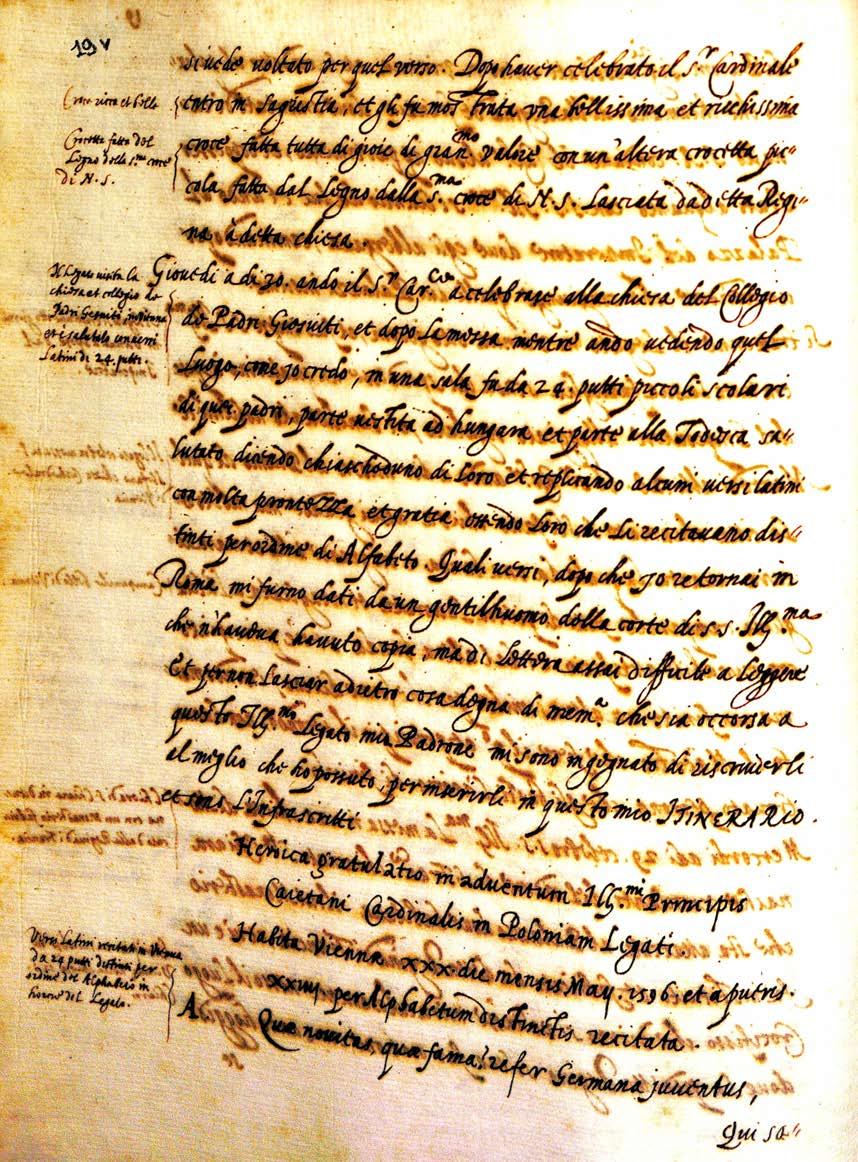 19 v
si vede voltato per quel verso. Dopo haver celebrato il S.r Cardinale
Croce ricca et bella
entro in sagristia, et gli fu mostrata una bellissima et ricchissima
croce fatta tutta di gioie di gran.mo valore con un'altera crocetta pic=
Crocetta fatta del
Legno della s.ma croce
di N. S.
cola fatta dal legno dalla s.ma croce di N. S. Lasciata da detta Regi=
na à detta chiesa.
Il Legato visita la
chiesa et collegio de
Padri Gesuiti in Vienna
et è salutato con versi
latini da 24. putti.
Giovedi a di 30. ando il S.r Car.le a celebrare alla chiesa del Collegio
de Padri Giesuiti, et dopo la messa mentre ando vedendo quel
luogo, come jo credo, in una sala fu da 24. putti piccoli scolari
di quei padri, parte vestita ad hungara et parte alla Todesca sa=
lutato dicendo chiaschoduno di loro et replicando alcuni versi latini
con molta prontezza et gratia essendo loro che li recitavano dis=
tinti per ordine di Alfabeto. Quali versi, dopo che jo retornai in
Roma mi furno dati da un gentilhuomo della corte di S. S. Ill.ma
che n'haveva havuto copia, ma di lettera assai difficile a leggere
et per non lasciar adietro cosa degna di mem.a che sia occorsa a
questo Ill.mo Legato mio Padrone mi sono ingegnato di riscriverli
al meglio che ho possuto, per inserirli in questo mio ITINERARIO.
et sono l'Infrascritti
Heroica gratulatio in adventum Ill.mi Principis
Caietani Cardinalis in Poloniam Legati.
Habita Viennæ xxx die mensis May. 1596. et a pueris.
Versi latini recitati in Vienna
da 24 putti distinti per
ordine del Alphabeto in
honore del Legato.
xxiiij per Alphabetum distinctis recitata.
A. Quæ novitas, quæ fama? refer Germana juventus,
Qui sa=